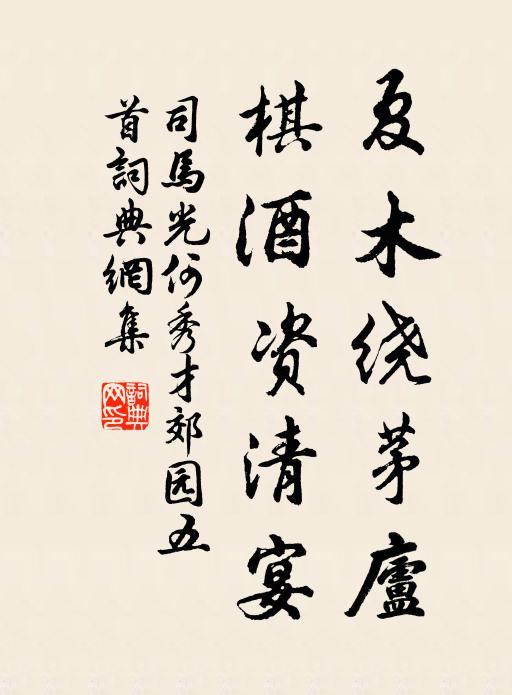 夏木绕茅廬
棋酒资清宴
司馬光何秀才郊园五
首詞典網集
詞典
网印